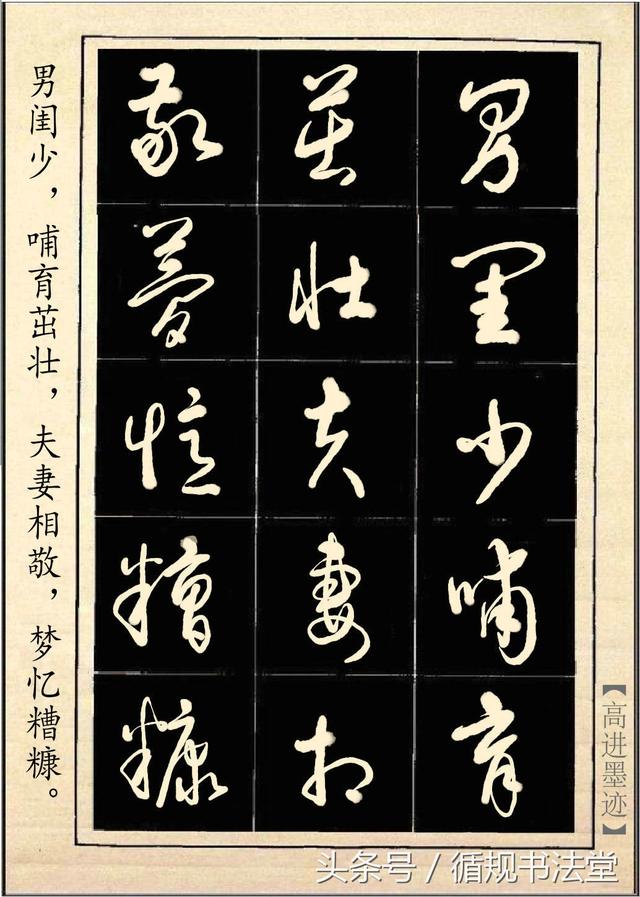 男闺少哺育
茁壮夫妻相
敬梦忆糟糠
男闺少，哺育茁壮，夫妻相敬，梦忆糟糠。
【高进墨迹】
头条号／循规书法堂